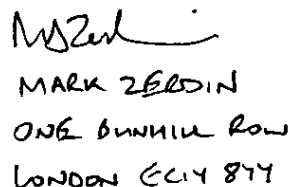 MARK ZERDIN
ONE BUNHILL ROW
LONDON EC1Y 8YY